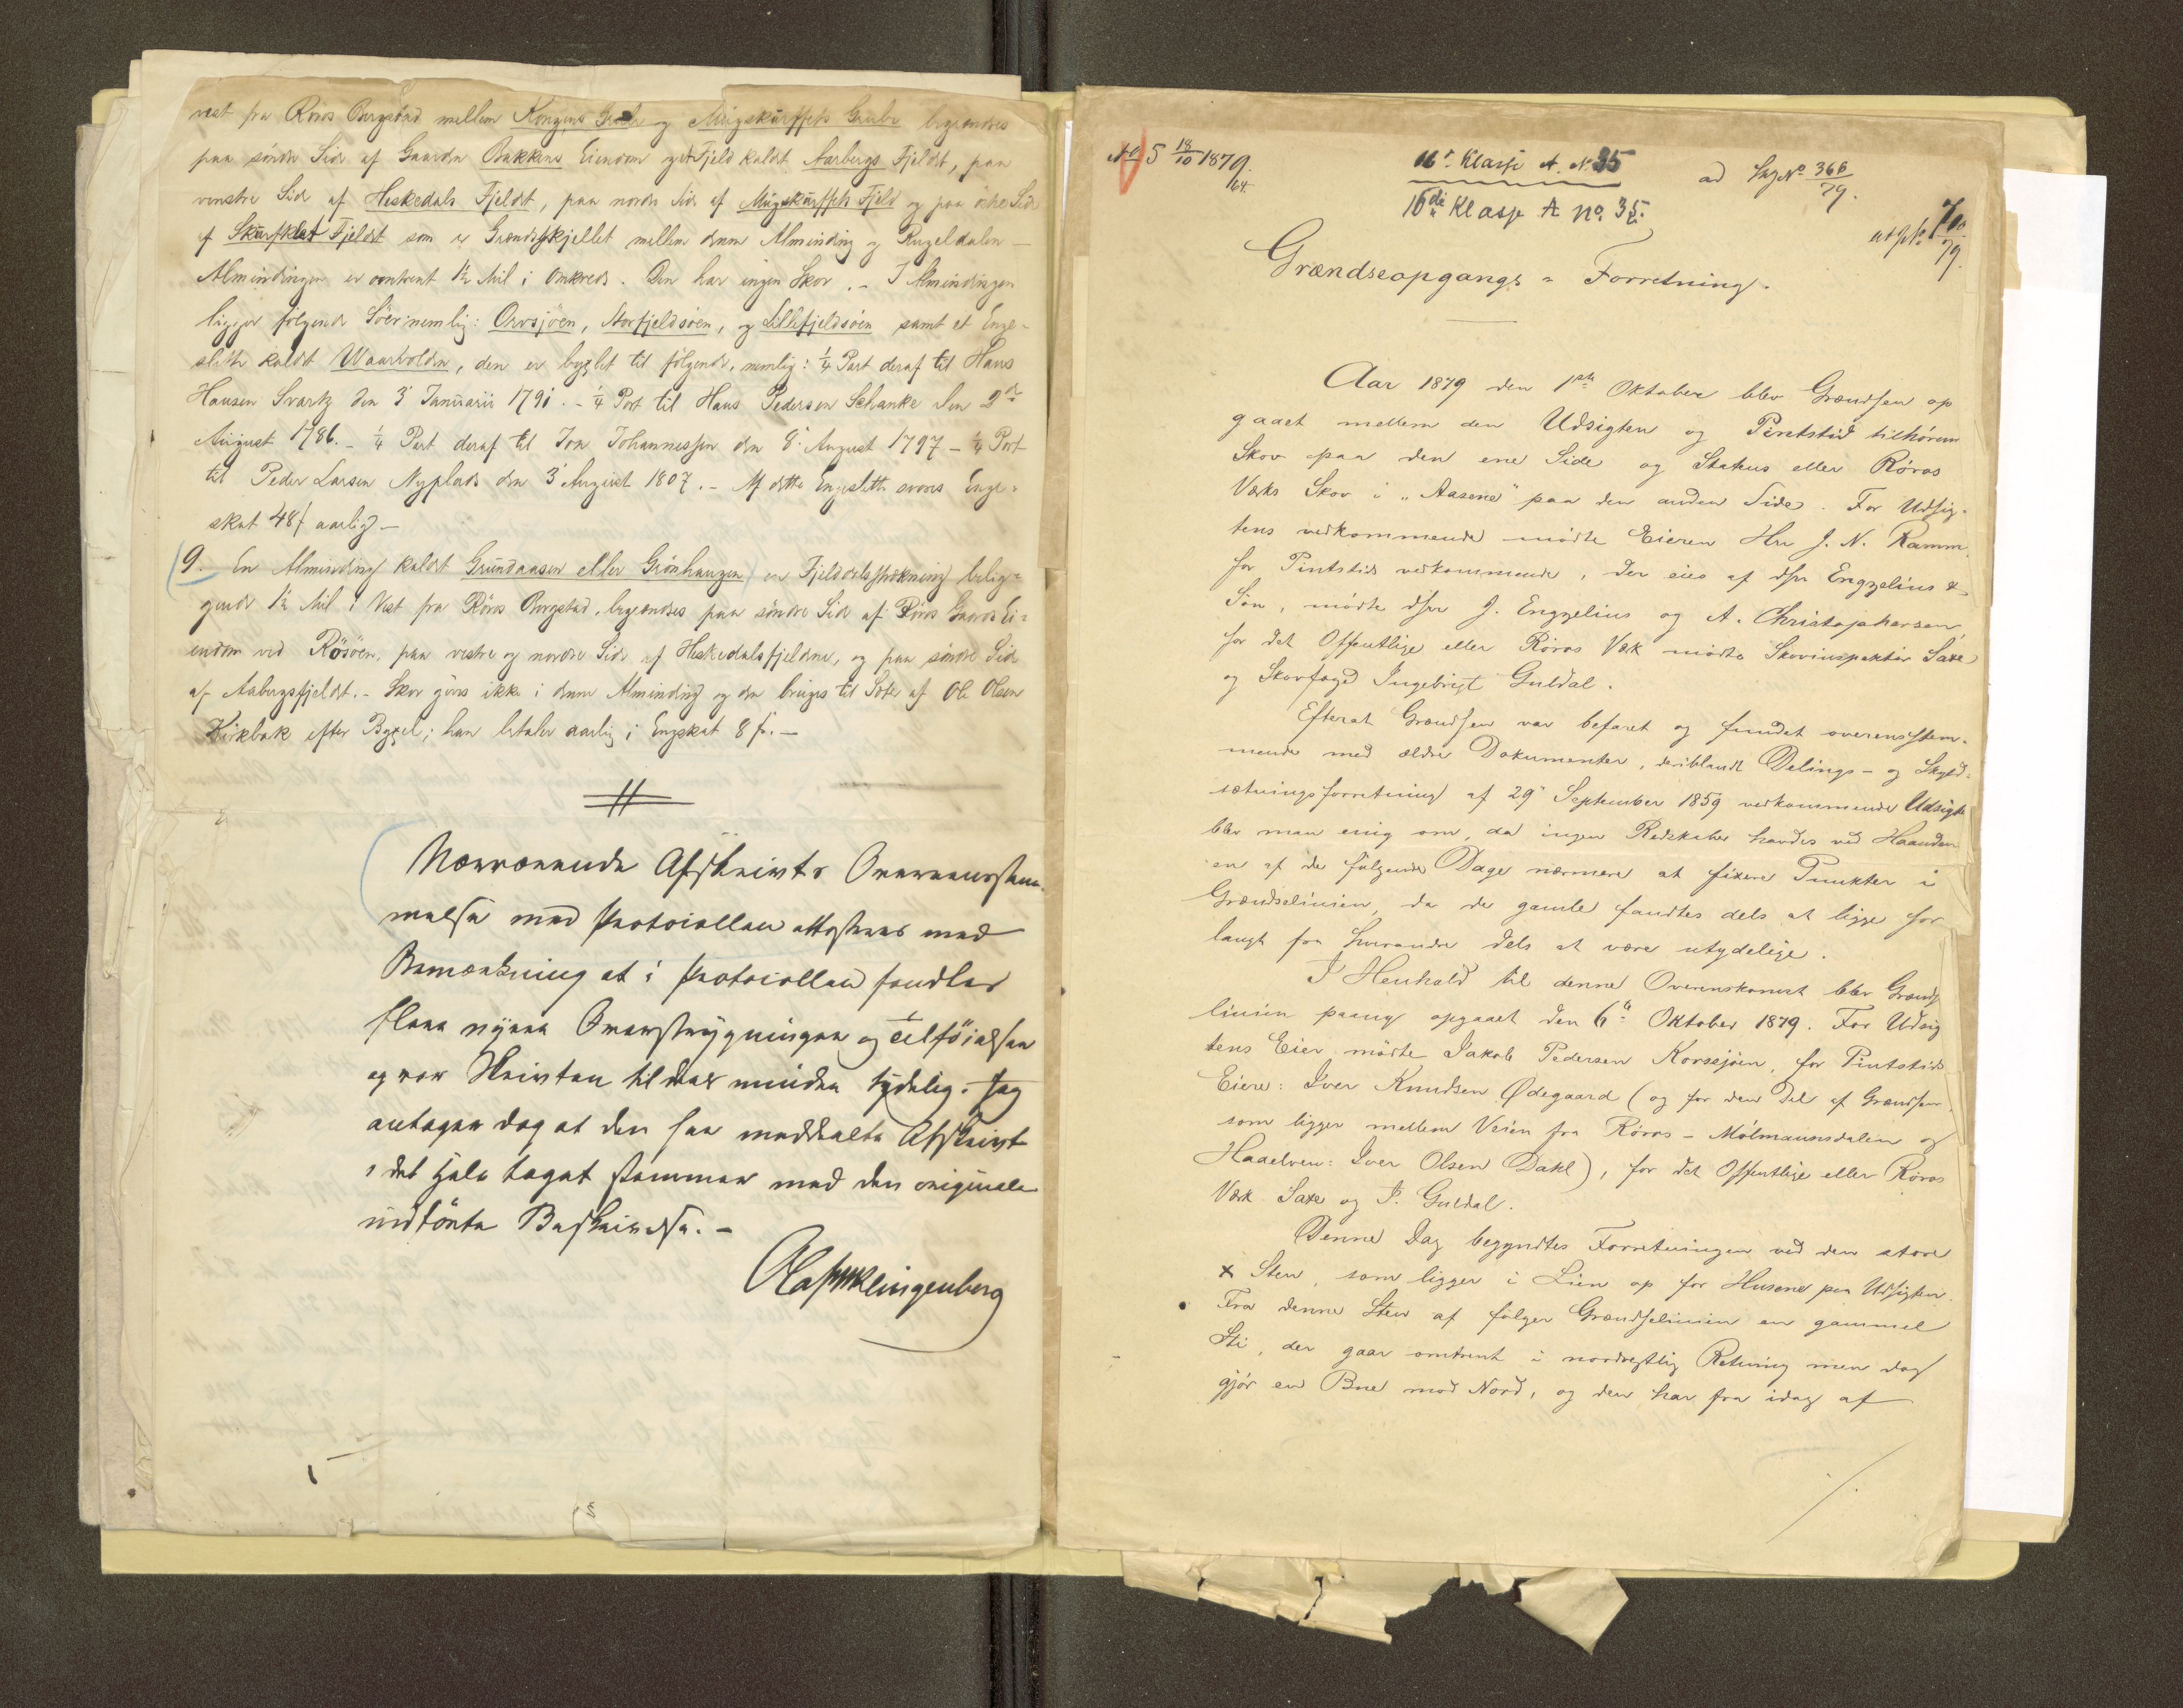 vest fra Röros Bergstad mellem Kongens Grube og Mugskurffets Grube begrændses
paa söndre Side af Gaarden Bakkens Eiendom og et Fjeld kaldet Aarbergs Fjeldet, paa
venstre Side af Heskedals Fjeldet, paa nordre Side af Mugskurffets Fjeld og paa östre Side
af Skurfklet Fjeldet som er Grændseskjellet mellem denne Alminding og Rugeldalen —
Almindingen er omtrent 1½ Mil i Omkreds. Den har ingen Skov. – I Almindingen
ligger følgende Söer nemlig: Orvsjöen, Storfjeldsöen, og Lillefjeldsöen samt et Enge-
slette kaldet Waarholden, den er byxlet til fölgende, nemlig: ¼ Part deraf til Hans
Hansen Svartz den 3' Januarii 1791. – ¼ Part til Hans Pedersen Schanke den 2den
August 1786. – ¼ Part deraf til Jon Johannessen den 8' August 1797 – ¼ Part
til Peder Larsen Nyplads den 3' August 1807. – Af dette Engeslette svares Enge-
skat 48 ß aarlig –
9. En Alminding kaldet Grundaasen eller Grönhaugen, en Fjeldstrækning belig-
gende 1½ Mil i Vest fra Röros Bergstad, begrændses paa söndre Side af Röros Gaards Ei-
endom ved Rösöen, paa vestre og nordre Side af Heskedalsfjeldene, og paa söndre Side
af Aabergsfjeldet. – Skov gives ikke i denne Alminding og den bruges til Sæter af Ole Olsen
Kirkbak efter Bygsel; han betaler aarlig i Engskat 8 ß. –
Nærværende Afskrivts Overeensstem-
melse med Protocollen attesteres med
Bemærkning at i Protocollen fandtes
flere nyere Overstregninger og Tilföielser
og var Skriften til deels mindre tydelig. Jeg
antager dog at den her meddeelte Afskrivt
i det hele taget stemmer med den originale
indförte Beskrivelse. –
Olaf Klingenberg
No 5 18/10 1879.
64.
16de Klasse A. No 35
16de Klasse A No. 35.
ad Jrg No 366/79.
Grændseopgangs- Forretning.
Aar 1879 den 1ste Oktober blev Grændsen op
gaaet mellem den Udsigten og Pintstid tilhørende
Skov paa den ene Side og Statens eller Röros
Værks Skov i „Aasene" paa den anden Side. For Udsig-
tens vedkommende mödte Eieren Hr J. N. Ramm,
for Pintstids vedkommende, der eies af Dhrr Engzelius &
Sön, mödte Dhrr J. Engzelius og A. Christophersen,
for det Offentlige eller Röros Værk mödte Skovinspektör Saxe
og Skovfoged Ingebrigt Guldal.
Efterat Grændsen var befaret og fundet overensstem-
mende med ældre Dokumenter, deriblandt Delings- og Skyld-
sætningsforretning af 29' September 1859 vedkommende Udsigten
blev man enig om, da ingen Redskaber havdes ved Haanden
en af de fölgende Dage nærmere at fixere Punkter i
Grændselinien, da de gamle fandtes dels at ligge for
langt fra hverandre dels at være utydelige.
I Henhold til denne Overenskomst blev Grænds
linien paany opgaaet den 6te Oktober 1879. For Udsig
tens Eier mödte Jakob Pedersen Korssjöen, for Pintstids
Eiere: Iver Knudsen Ødegaard (og for den Del af Grændsen,
som ligger mellem Veien fra Röros – Molmannsdalen og
Haaelven: Iver Olsen Dahl), for det Offentlige eller Röros
Værk Saxe og I. Guldal.
Denne Dag begyndtes Forretningen ved den store
x Sten, som ligger i Lien op for Husene paa Udsigten.
Fra denne Sten af fölger Grændselinien en gammel
Sti, der gaar omtrent i nordvestlig Retning men dog
gjör en Bue mod Nord, og den har fra idag af